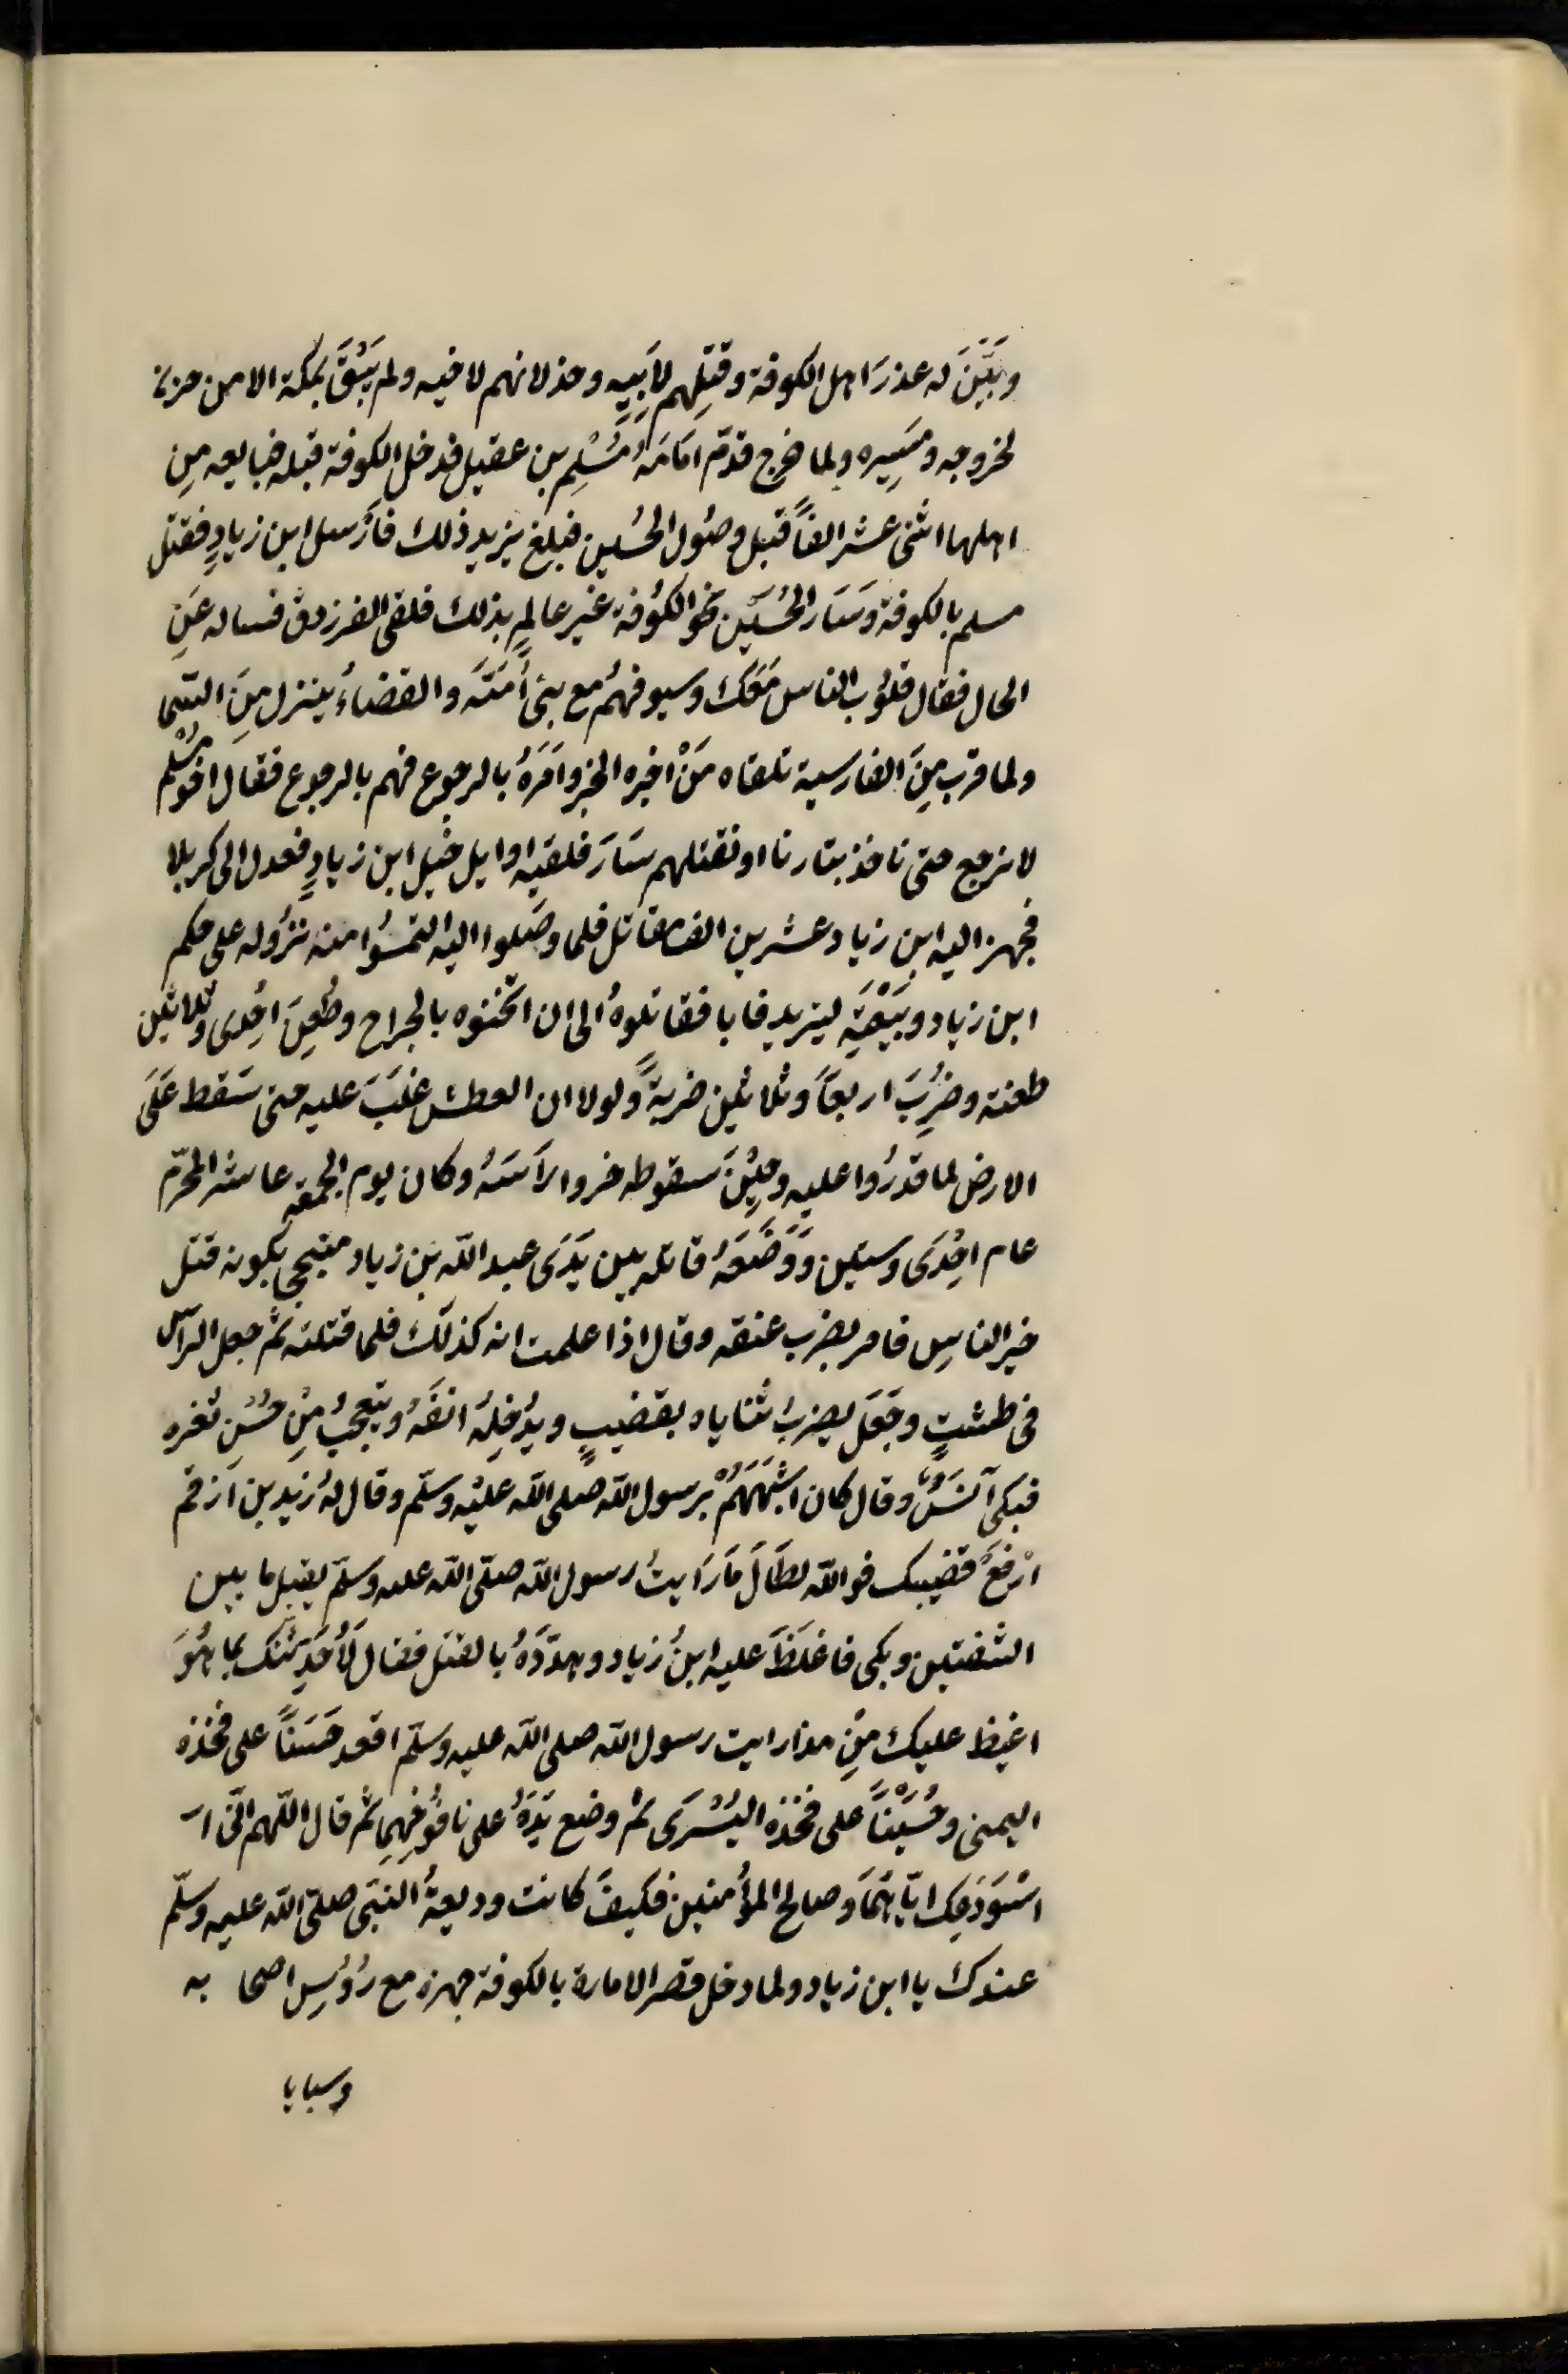 وبَيَّنَ له عذرَ اهل الكوفة وقتلِهم لأَبِيِه وخذلانهم لاخيه ولم يَبْقَ بمكة الا من حزن
لخروجه ومَسِيره ولما خرج قدّم امَامَهُ مُسْلِم بن عقيل فدخل الكوفة قبله فبايعه مِن
اهلها اثنى عشر الفاً قبل وصُول الحُسين فبلغ يزيد ذلك فاَرْسل ابن زيادٍ فقتل
مسلم بالكوفة وسَار الحُسَيْن نحو الكوُفة غير عالمٍ بذلك فلقى الفرزدق فساله عَنِ
الحال فقال قلوُب الناس مَعَكَ وسيوفهُم مع بنى أمَيَّه والقضاءُ ينزل مِنَ السّما
ولما قرب مِنَ القادسية تلقاه مَنْ اخبره الخبر واَمَرَهُ بالرجوع فهم بالرجوع فقال اخو مُسْلم
لا نرجع حتى ناخذ بثارنا او نقتلهم سَارَ فلقيه اوايل خيل ابن زيادٍ فعدل الى كربلا
فجهز اليه ابن زياد عشرين الف مقاتل فلما وصَلوا اليه التمسُوا منه نزُوله على حكم
ابن زياد وبَيْعَتِه ليزيد فابا فقاتلوهُ الى ان اثخنوه بالجراح وطُعِنَ احِدى وثلاثين
طعنته وضُرِبَ اربعاً وثلاثين ضربةً ولولا ان العطش غلبَ عليه حتى سَقط عَلَى
الارض لما قدرُوا عليه وحِيْنَ سقوطه خروا رأسَهُ وكان يوم الجمعه عاشر المحرّم
عام احِدَى وستين ووَضَعَهُ قاتله بين يَدَى عبد الله بن زياد مبتجى بكونه قتل
خير الناسِ فامر بضرب عنقه وقال اذا علمت انه كذلك فلما قتلته ثم جعل الرأس
فى طشتٍ وجَعَل يضربُ ثناياه بقضيبٍ ويُدخِلهُ انفَهُ ويتعجبُ مِنْ حُسْنِ ثغره
فبكى آنسَُ وقال كان اشْبَهَهُمْ برسول الله صلى الله عليْه وسلّم وقال لهُ زيد بن ارْقم
ارْفعْ قضيبك فوالله لطَالَ مَا رَايتُ رسول الله صلّى الله عليه وسَلّم يقبل ما بين
الشفتين وبكى فاغلَظَ عليه ابنُ زياد وهدّدَهُ بالقتل فقال لأُحَدِّثنّك بما هُوَ
اغيظ عليك مِنْ هذا رايت رسول الله صلى الله عليه وسلّم اقعد حَسَناً على فخذه
اليمنى وحُسَيْناً على فخذه اليُسْرَى ثم وضع يَدَهُ على نافُوخِهِما ثم قال اللّهم انّى اسـ
اسْتوَدَعِك ايّاهُمَا وصالح المؤُمنين فكيفَ كانت وديعةُ النبّى صلّى الله عليه وسلّم
عندك يا ابن زياد ولما دخل قصر الامارة بالكوفة جهزه مع رُؤُسِ اصحا به
وسبايا